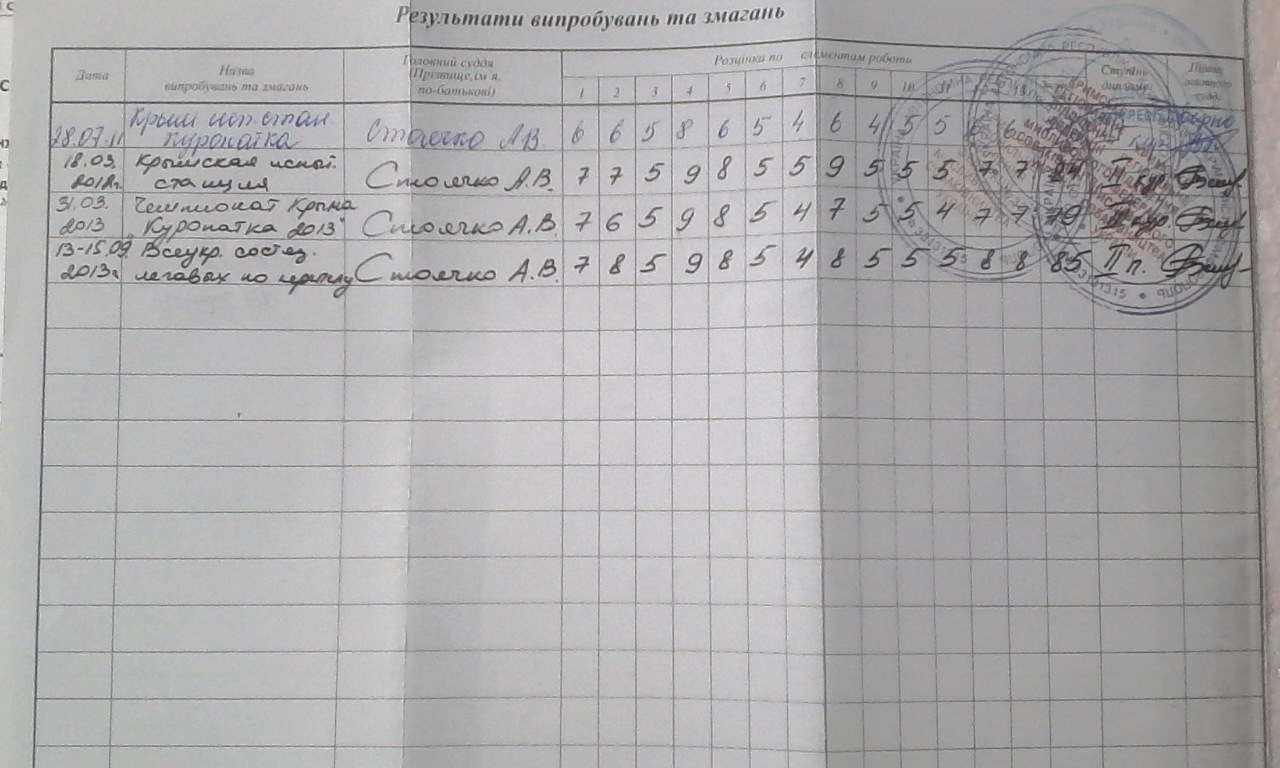 Результати випробувань та змагань
Дата
Назва
випробувань та змагань
Головний суддя
(Прізвище, ім'я,
по-батькові)
Розцінка по елементам роботи
Ступінь
диплому
1 2 3 4 5 6 7 8 9 10 11
28.07.11
куропатка
Стоячко А.В. 6 6 5 8 6 5 4 6 4 5 5 6 6
18.03.
2012г.
Крымская испыт.
станция
Стоячко А.В. 7 7 5 9 8 5 5 9 5 5 5 7 7 II кур.
31.03.
2013
Чемпионат Крыма
"Куропатка 2013"
Стоячко А.В. 7 6 5 9 8 5 4 7 5 5 4 7 7 79 кур.
13-15.09.
2013г
Всеукр. состяз.
легавых по перепелу
Стоячко А.В. 7 8 5 9 8 5 4 8 5 5 5 8 8 85 II п.